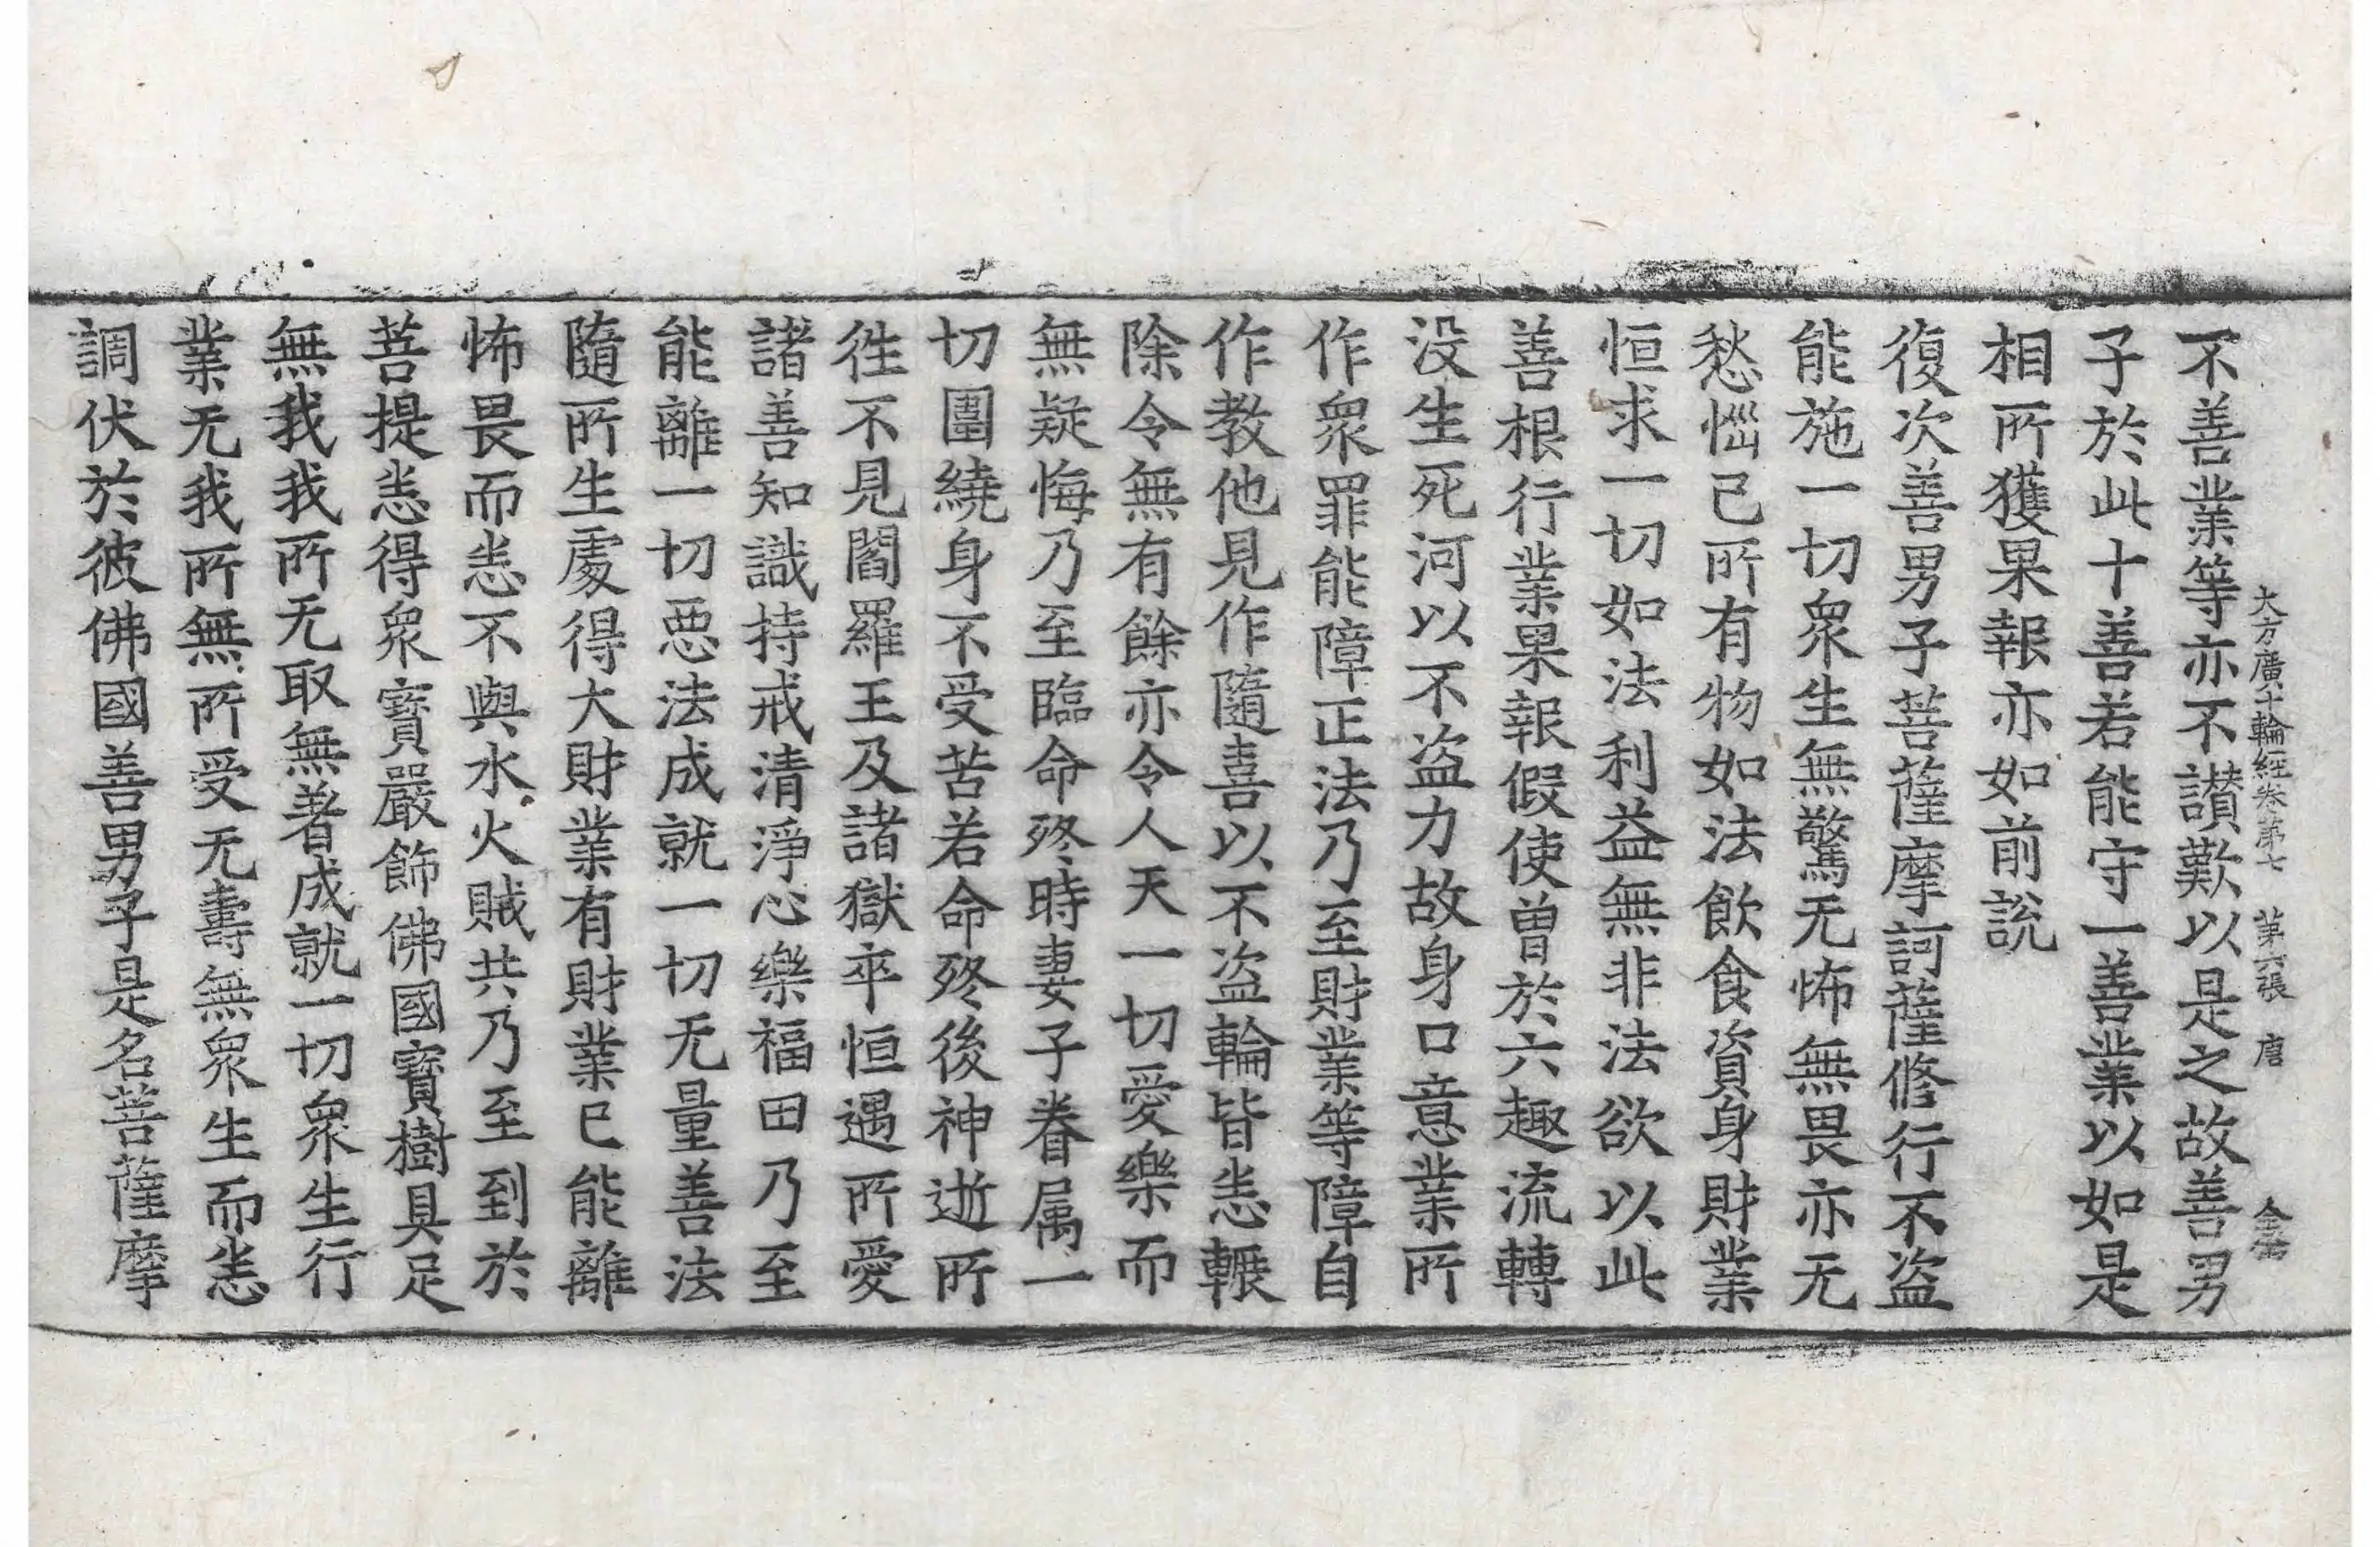 大方廣十輪經卷第七 第六張 唐
不善業等亦不讃歎以是之故善男
子於此十善若能守一善業以如是
相所獲果報亦如前說
復次善男子菩薩摩訶薩修行不盗
能施一切衆生無驚无怖無畏亦无
愁惱已所有物如法飲食資身財業
恒求一切如法利益無非法欲以此
善根行業果報假使曽於六趣流轉
没生死河以不盗力故身口意業所
作衆罪能障正法乃至財業等障自
作教他見作隨喜以不盗輪皆悉輾
除令無有餘亦令人天一切愛樂而
無疑悔乃至臨命終時妻子眷属一
切圍繞身不受苦若命終後神逝所
徃不見閻羅王及諸獄卒恒遇所愛
諸善知識持戒清淨心樂福田乃至
能離一切惡法成就一切无量善法
隨所生處得大財業有財業已能離
怖畏而悉不與水火賊共乃至到於
菩提悉得衆寶嚴飾佛國寶樹具足
無我我所无取無著成就一切衆生行
業无我所無所受无壽無衆生而悉
調伏於彼佛國善男子是名菩薩摩